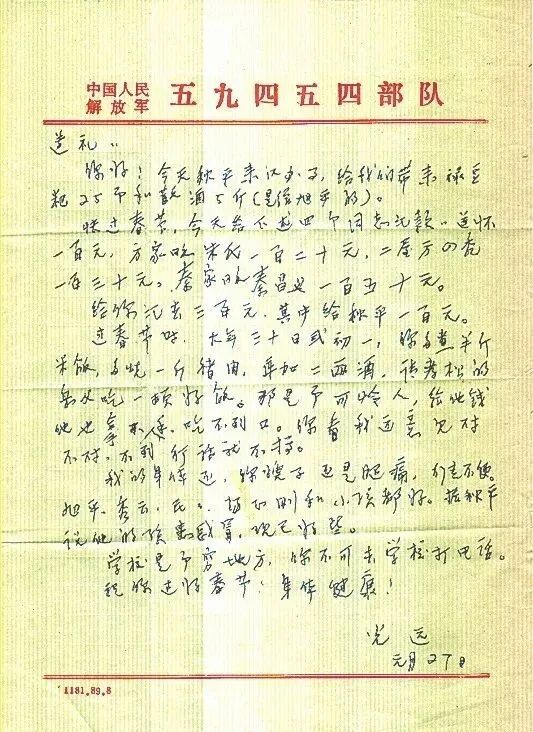 中国人民解放军 五九四五四部队
送礼：
你好！今天秋平来汉办事，给我的带来绿豆
粑25个和散酒5斤（是给旭平的）。
快过春节，今天给下述四个同志汇款：送怀
一百元，方家的宋氏一百二十元，二屋方四香
一百三十元。秦家的秦昌 一百五十元。
给你汇去三百元，其中给秋平一百元。
过春节时，大年三十日或初一，你多煮半斤
米饭，多烧一斤猪肉，再加二两酒，请孝松的
吃一顿好饭。那是个可怜人，给他钱
他也拿不住，吃不到口。你看我这意见对
不对，不到行话就不搞。
我的身体还，你嫂子还是腿痛，行走不便。
旭平、秀云、 和小孩都好。据秋平
说他的孩 感冒，现已好些。
学校是个穷地方，你不可去学校打电话。
祝你过好春节！身体健康！
光远
元月27日
1181.89.8